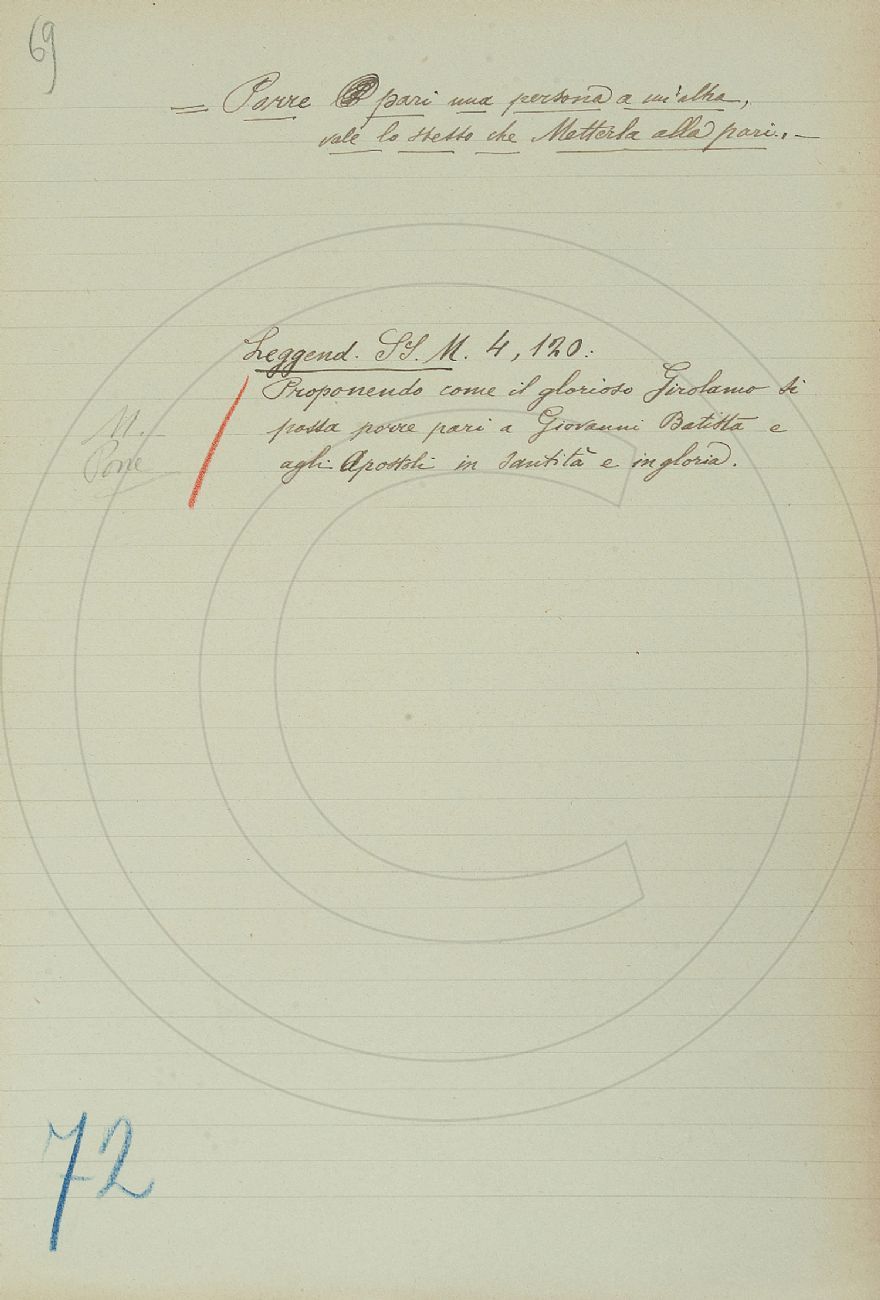 69
= Porre pari una persona a un'altra,
vale lo stesso che Metterla alla pari. —
Leggend. SS. M. 4, 120:
Proponendo come il glorioso Girolamo si
possa porre pari a Giovanni Batista e
agli Apostoli in santità e in gloria.
M.
Pone
72